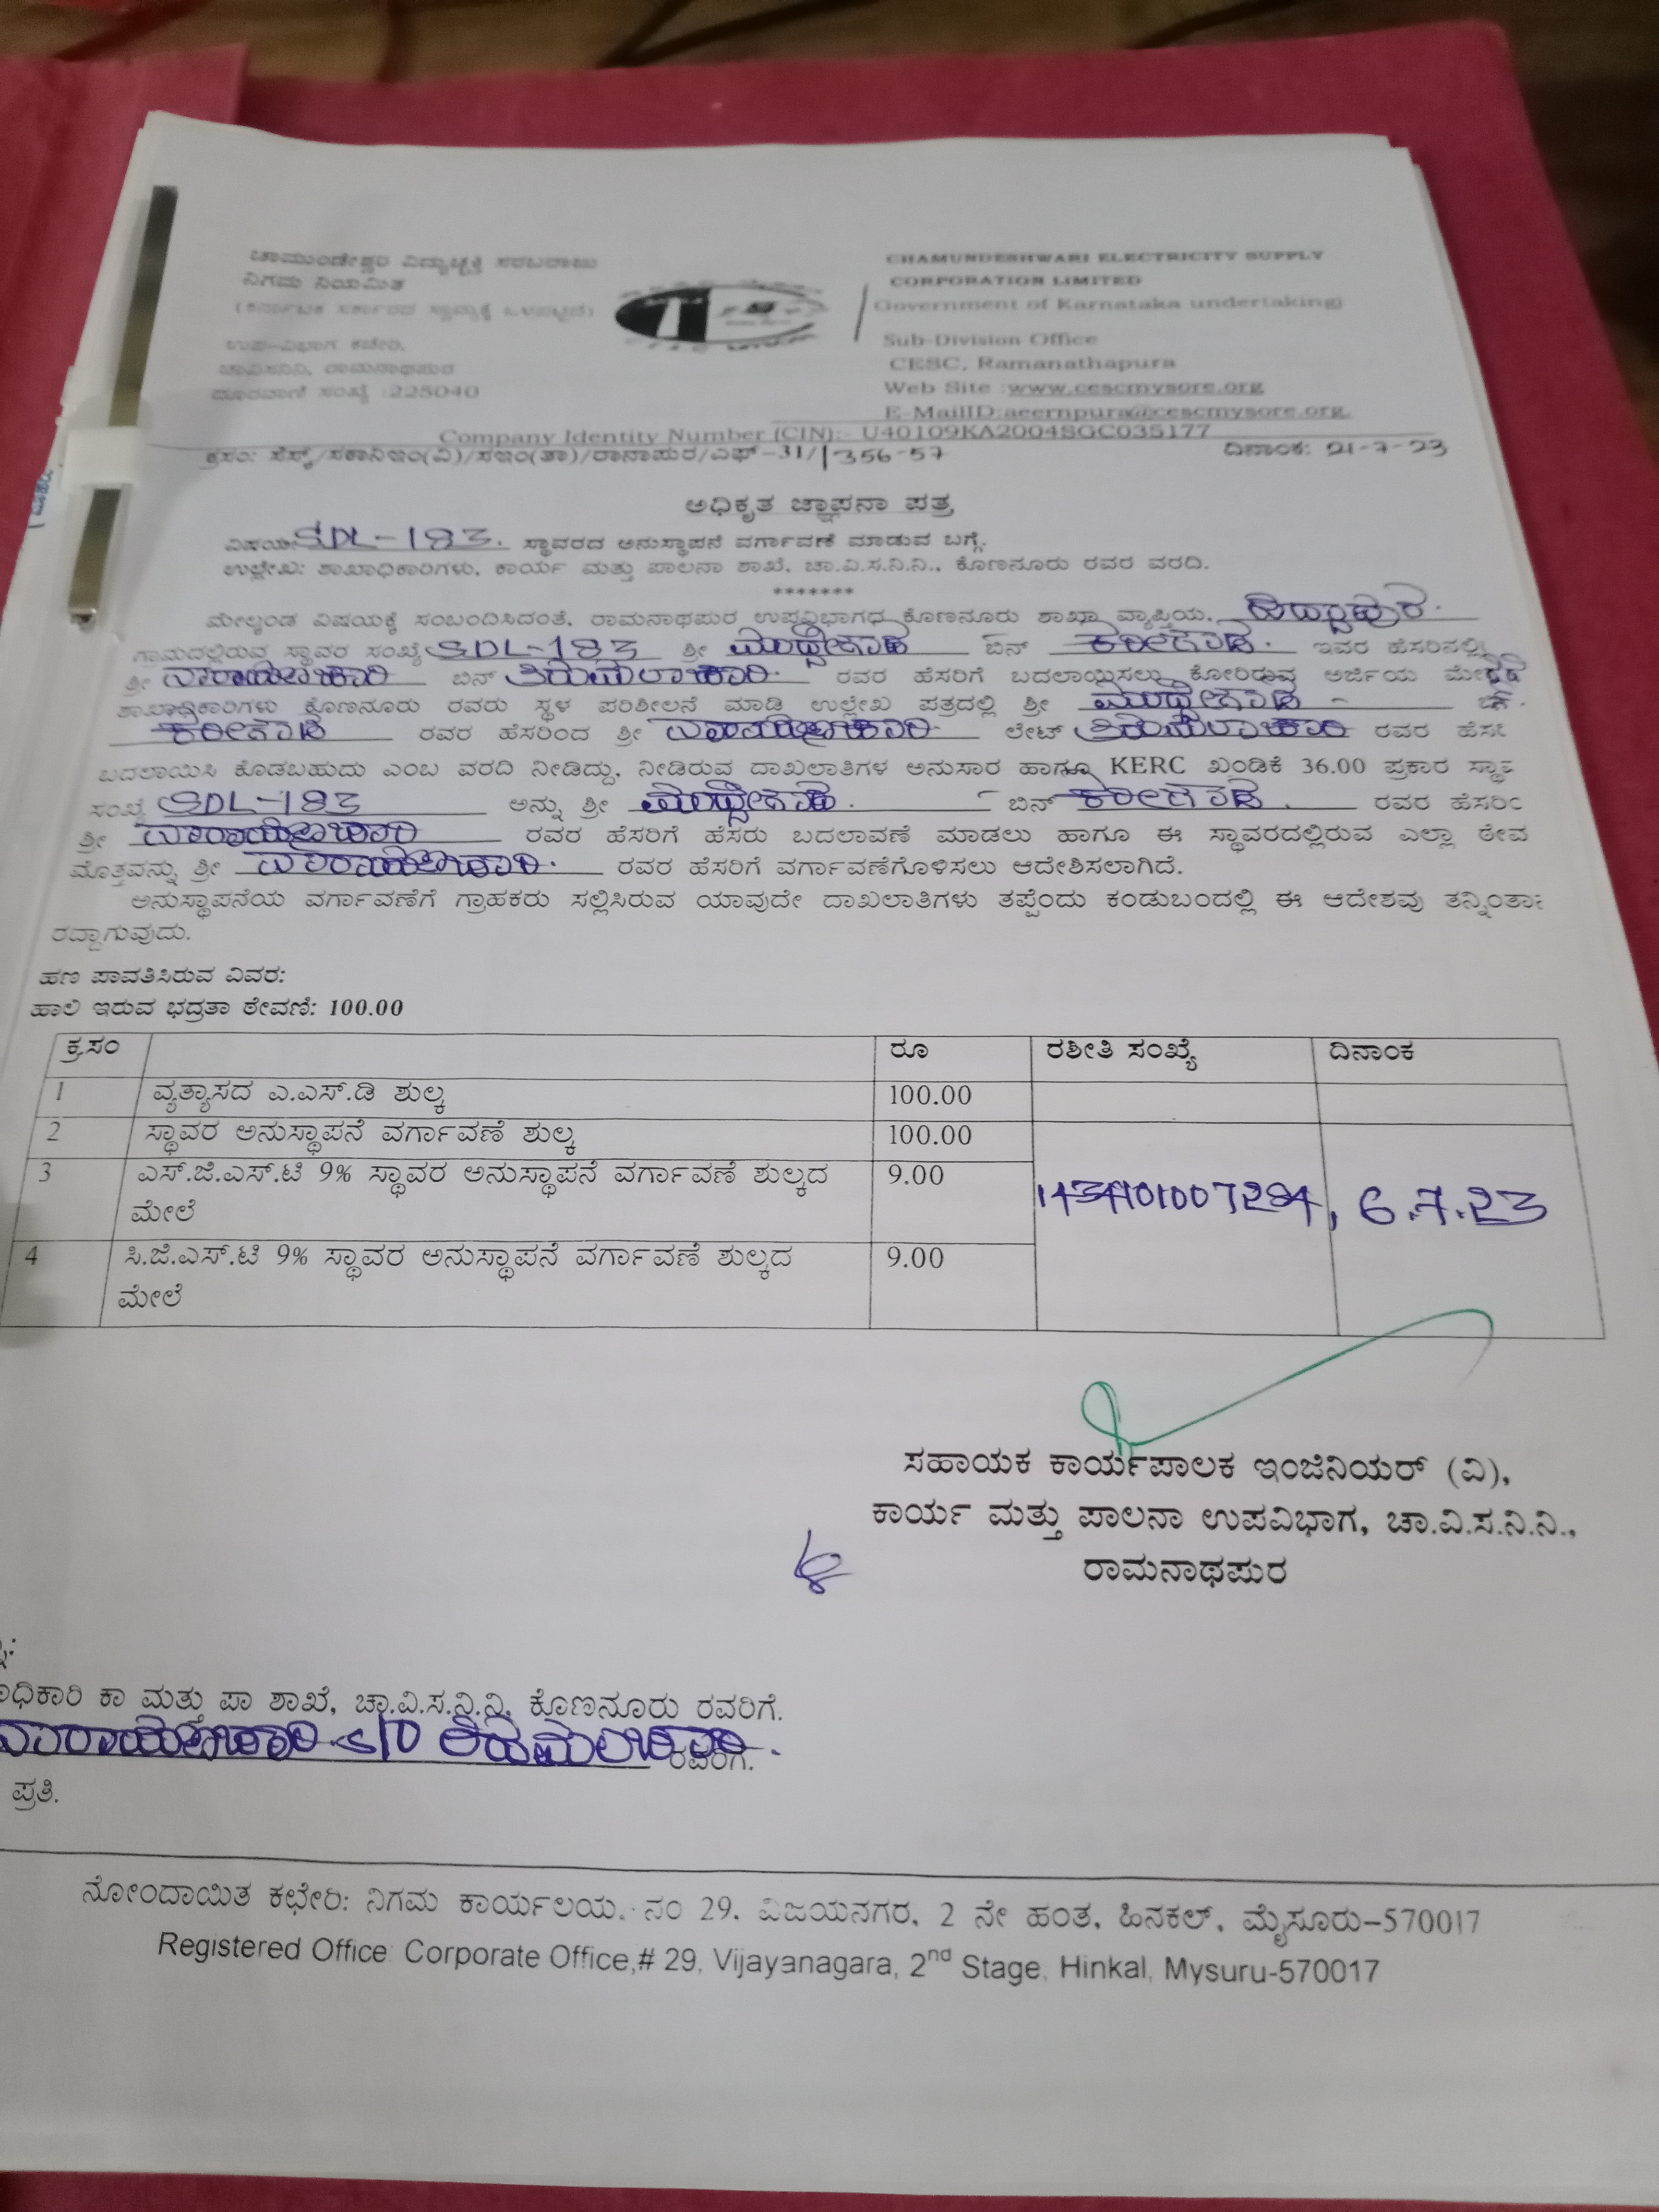 ಚಾಮುಂಡೇಶ್ವರಿ ವಿದ್ಯುಚ್ಛಕ್ತಿ ಸರಬರಾಜು
ನಿಗಮ ನಿಯಮಿತ
(ಕರ್ನಾಟಕ ಸರ್ಕಾರದ ಸ್ವಾಮ್ಯಕ್ಕೆ ಒಳಪಟ್ಟಿದೆ)
ಉಪ-ವಿಭಾಗ ಕಚೇರಿ,
ಚಾವಿಸನಿನಿ, ರಾಮನಾಥಪುರ
ದೂರವಾಣಿ ಸಂಖ್ಯೆ :225040
CHAMUNDESHWARI ELECTRICITY SUPPLY
CORPORATION LIMITED
Government of Karnataka undertaking)
Sub-Division Office
CESC, Ramanathapura
Web Site :www.cescmysore.org
E-MailID:aeernpura@cescmysore.org.
Company Identity Number (CIN):- U40109KA2004SGC035177
ಕ್ರಸಂ: ಸೆಸ್ಕ್/ಸಕಾನಿಇಂ(ವಿ)/ಸಇಂ(ತಾ)/ರಾನಾಪುರ/ಎಫ್-31/1356-57 ದಿನಾಂಕ: 21-7-23
ಅಧಿಕೃತ ಜ್ಞಾಪನಾ ಪತ್ರ
ವಿಷಯ: SDL-183. ಸ್ಥಾವರದ ಅನುಸ್ಥಾಪನೆ ವರ್ಗಾವಣೆ ಮಾಡುವ ಬಗ್ಗೆ.
ಉಲ್ಲೇಖ: ಶಾಖಾಧಿಕಾರಿಗಳು, ಕಾರ್ಯ ಮತ್ತು ಪಾಲನಾ ಶಾಖೆ, ಚಾ.ವಿ.ಸ.ನಿ.ನಿ., ಕೊಣನೂರು ರವರ ವರದಿ.
*******
ಮೇಲ್ಕಂಡ ವಿಷಯಕ್ಕೆ ಸಂಬಂದಿಸಿದಂತೆ, ರಾಮನಾಥಪುರ ಉಪವಿಭಾಗಧ ಕೊಣನೂರು ಶಾಖಾ ವ್ಯಾಪ್ತಿಯ,
ಗ್ರಾಮದಲ್ಲಿರುವ ಸ್ಥಾವರ ಸಂಖ್ಯೆ SDL-183 ಶ್ರೀ ಬಿನ್ ಕರೀಗೌಡ. ಇವರ ಹೆಸರಿನಲ್ಲಿ
ಶ್ರೀ ನಾರಾಯಣಚಾರಿ ಬಿನ್ ತಿರುಮಲಾಚಾರಿ. ರವರ ಹೆಸರಿಗೆ ಬದಲಾಯಿಸಲು ಕೋರಿರುವ ಅರ್ಜಿಯ
ಶಾಖಾಧಿಕಾರಿಗಳು ಕೊಣನೂರು ರವರು ಸ್ಥಳ ಪರಿಶೀಲನೆ ಮಾಡಿ ಉಲ್ಲೇಖ ಪತ್ರದಲ್ಲಿ ಶ್ರೀ
ಕರೀಗೌಡ ರವರ ಹೆಸರಿಂದ ಶ್ರೀ ನಾರಾಯಣಚಾರಿ ಲೇಟ್ ತಿರುಮಲಾಚಾರಿ ರವರ
ಬದಲಾಯಿಸಿ ಕೊಡಬಹುದು ಎಂಬ ವರದಿ ನೀಡಿದ್ದು, ನೀಡಿರುವ ದಾಖಲಾತಿಗಳ ಅನುಸಾರ ಹಾಗೂ KERC ಖಂಡಿಕೆ 36.00 ಪ್ರಕಾರ
ಸಂಖ್ಯೆ SDL-183 ಅನ್ನು ಶ್ರೀ ಬಿನ್ ಕರೀಗೌಡ. ರವರ
ಶ್ರೀ ನಾರಾಯಣಚಾರಿ ರವರ ಹೆಸರಿಗೆ ಹೆಸರು ಬದಲಾವಣೆ ಮಾಡಲು ಹಾಗೂ ಈ ಸ್ಥಾವರದಲ್ಲಿರುವ ಎಲ್ಲಾ ಠೇವ
ಮೊತ್ತವನ್ನು ಶ್ರೀ ನಾರಾಯಣಚಾರಿ. ರವರ ಹೆಸರಿಗೆ ವರ್ಗಾವಣೆಗೊಳಿಸಲು ಆದೇಶಿಸಲಾಗಿದೆ.
ಅನುಸ್ಥಾಪನೆಯ ವರ್ಗಾವಣೆಗೆ ಗ್ರಾಹಕರು ಸಲ್ಲಿಸಿರುವ ಯಾವುದೇ ದಾಖಲಾತಿಗಳು ತಪ್ಪೆಂದು ಕಂಡುಬಂದಲ್ಲಿ ಈ ಆದೇಶವು ತನ್ನಿಂತಾ
ರದ್ದಾಗುವುದು.
ಹಣ ಪಾವತಿಸಿರುವ ವಿವರ:
ಹಾಲಿ ಇರುವ ಭದ್ರತಾ ಠೇವಣಿ: 100.00
ಕ್ರ.ಸಂ ರೂ ರಶೀತಿ ಸಂಖ್ಯೆ ದಿನಾಂಕ
1 ವ್ಯತ್ಯಾಸದ ಎ.ಎಸ್.ಡಿ ಶುಲ್ಕ 100.00
2 ಸ್ಥಾವರ ಅನುಸ್ಥಾಪನೆ ವರ್ಗಾವಣೆ ಶುಲ್ಕ 100.00
3 ಎಸ್.ಜಿ.ಎಸ್.ಟಿ 9% ಸ್ಥಾವರ ಅನುಸ್ಥಾಪನೆ ವರ್ಗಾವಣೆ ಶುಲ್ಕದ 9.00
ಮೇಲೆ
6.7.23
4 ಸಿ.ಜಿ.ಎಸ್.ಟಿ 9% ಸ್ಥಾವರ ಅನುಸ್ಥಾಪನೆ ವರ್ಗಾವಣೆ ಶುಲ್ಕದ 9.00
ಮೇಲೆ
ಸಹಾಯಕ ಕಾರ್ಯಪಾಲಕ ಇಂಜಿನಿಯರ್ (ವಿ),
ಕಾರ್ಯ ಮತ್ತು ಪಾಲನಾ ಉಪವಿಭಾಗ, ಚಾ.ವಿ.ಸ.ನಿ.ನಿ.,
ರಾಮನಾಥಪುರ
ಾಧಿಕಾರಿ ಕಾ ಮತ್ತು ಪಾ ಶಾಖೆ, ಚಾ.ವಿ.ಸ.ನಿ.ನಿ, ಕೊಣನೂರು ರವರಿಗೆ.
ನಾರಾಯಣಚಾರಿ S/O ತಿರುಮಲಚಾರಿ. ರವರಿಗೆ.
ಪ್ರತಿ.
ನೋಂದಾಯಿತ ಕಛೇರಿ: ನಿಗಮ ಕಾರ್ಯಲಯ, ನಂ 29, ವಿಜಯನಗರ, 2 ನೇ ಹಂತ, ಹಿನಕಲ್, ಮೈಸೂರು-570017
Registered Office: Corporate Office,# 29, Vijayanagara, 2nd Stage, Hinkal, Mysuru-570017